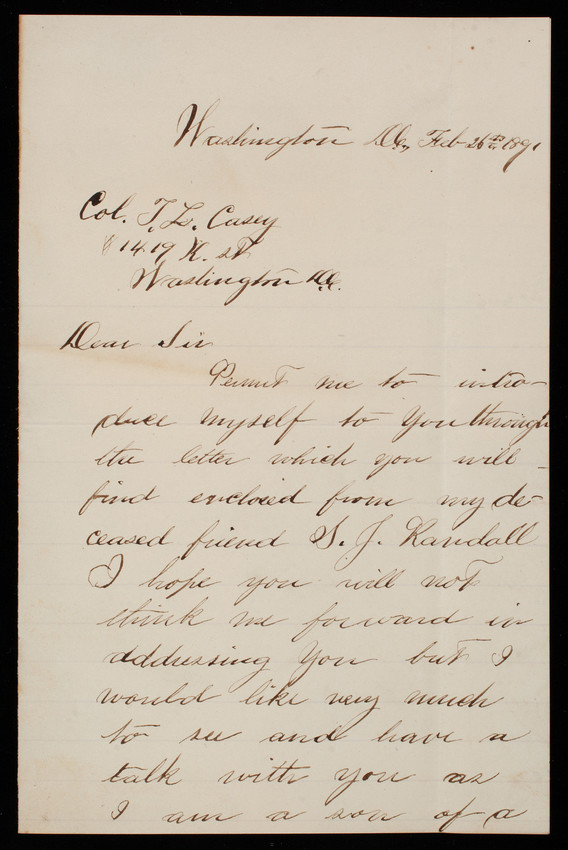 Washington DC, Feb 26th 1891
Col. T. L. Casey
1419 K. st
Washington DC.
Dear Sir
Permit me to intro-
duce myself to you through
the letter which you will
find enclosed from my de-
ceased friend S. J. Randall
I hope you will not
think me forward in
adddressing you but I
would like very much
to see and have a
talk with you as
I am a son of a